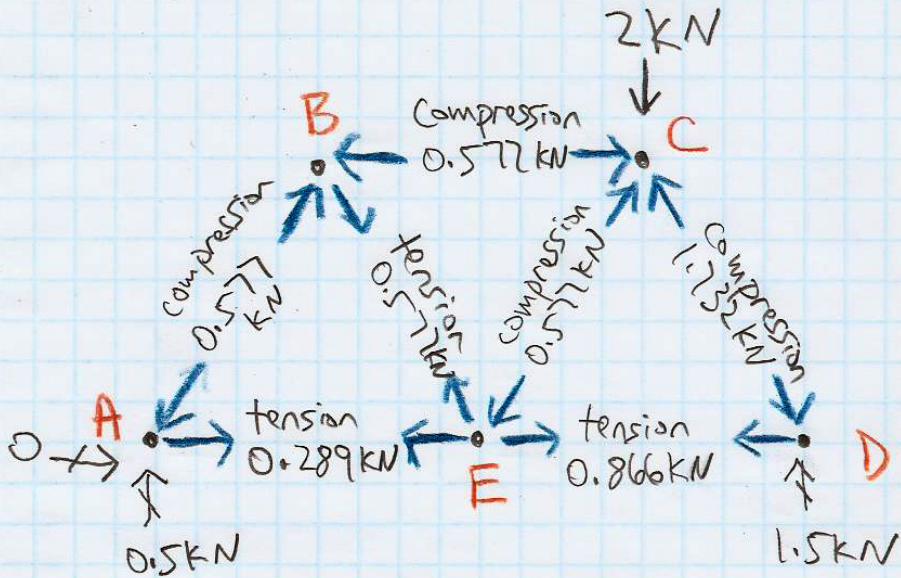 2KN
B
Compression
0.577KN
C
compression
0.577
KN
tension
0.577KN
compression
0.577KN
compression
1.732KN
A
tension
0.289KN
tension
0.866KN
O
E
D
0.5KN
1.5KN